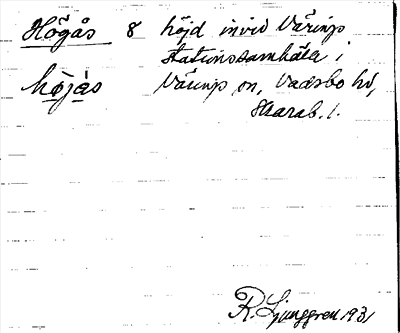 Högås 8 höjd invid Värings
stationssamhäle i
höjås Värings sn, Vadsbo hd,
Skarab. l.
R. Ljunggren 1931